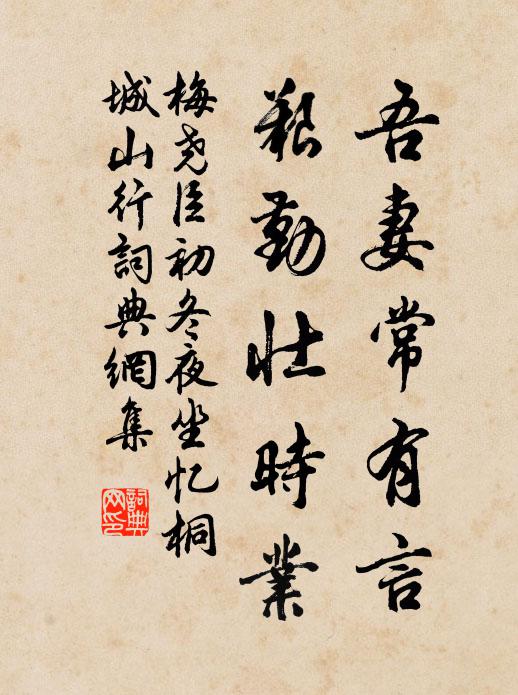 吾妻常有言
艱勤壯時業
梅尧臣初冬夜坐忆桐
城山行詞典網集
詞典
网印